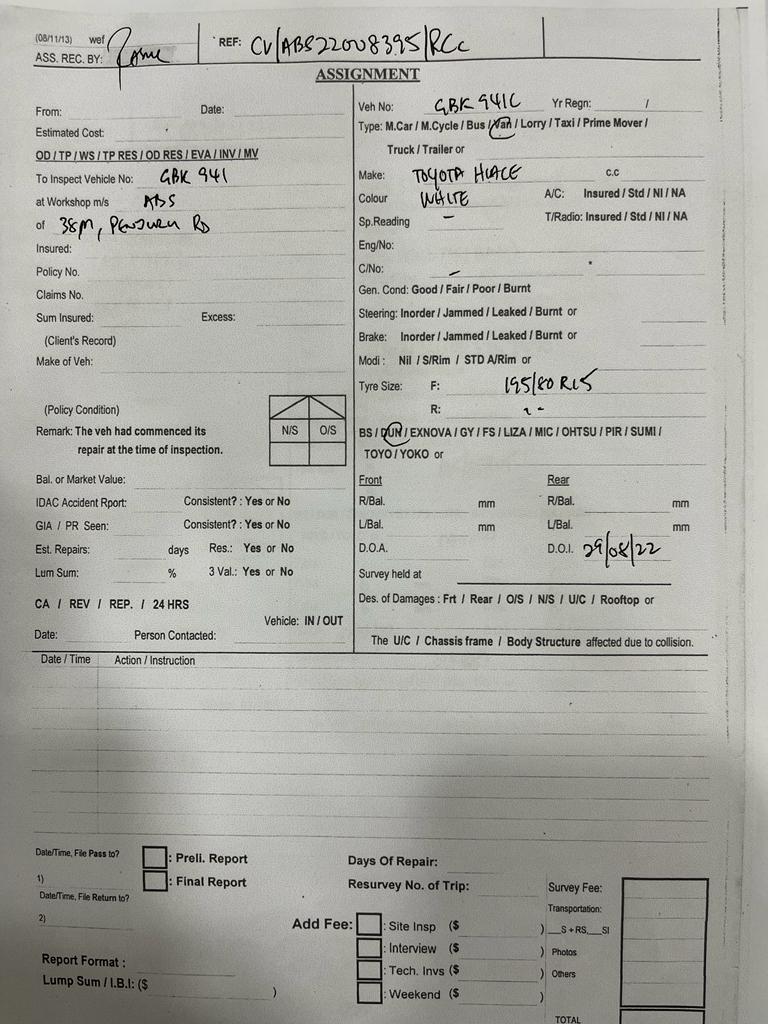 (08/11/13) wef
REF: CV/ABS22008395/RCc
ASS. REC. BY:
ASSIGNMENT
From: Date:
Estimated Cost:
OD / TP / WS / TP RES / OD RES / EVA / INV / MV
To Inspect Vehicle No: GBK 941
at Workshop m/s ABS
of 38M, RD
Insured:
Policy No.
Claims No.
Sum Insured: Excess:
(Client's Record)
Make of Veh:
(Policy Condition)
Remark: The veh had commenced its
repair at the time of inspection.
N/S O/S
Bal. or Market Value:
IDAC Accident Rport: Consistent? : Yes or No
GIA / PR Seen: Consistent? : Yes or No
Est. Repairs: days Res.: Yes or No
Lum Sum: % 3 Val.: Yes or No
CA / REV / REP. / 24 HRS
Vehicle: IN / OUT
Date: Person Contacted:
Veh No: GBK 941C Yr Regn: /
Type: M.Car / M.Cycle / Bus / Van / Lorry / Taxi / Prime Mover /
Truck / Trailer or
Make: TOYOTA HIACE c.c
Colour WHITE A/C: Insured / Std / NI / NA
Sp.Reading - T/Radio: Insured / Std / NI / NA
Eng/No:
C/No: -
Gen. Cond: Good / Fair / Poor / Burnt
Steering: Inorder / Jammed / Leaked / Burnt or
Brake: Inorder / Jammed / Leaked / Burnt or
Modi : Nil / S/Rim / STD A/Rim or
Tyre Size: F: 195/80 R15
R:
BS / DUN / EXNOVA / GY / FS / LIZA / MIC / OHTSU / PIR / SUMI /
TOYO / YOKO or
Front Rear
R/Bal. mm R/Bal. mm
L/Bal. mm L/Bal. mm
D.O.A. D.O.I. 29/08/22
Survey held at
Des. of Damages : Frt / Rear / O/S / N/S / U/C / Rooftop or
The U/C / Chassis frame / Body Structure affected due to collision.
Date / Time Action / Instruction
Date/Time, File Pass to?
1)
Date/Time, File Return to?
2)
: Preli. Report
: Final Report
Days Of Repair:
Resurvey No. of Trip:
Add Fee: : Site Insp ($ )
: Interview ($ )
: Tech. Invs ($ )
: Weekend ($ )
Survey Fee:
Transportation:
__S + RS,__SI
Photos
Others
TOTAL
Report Format :
Lump Sum / I.B.I: ($ )